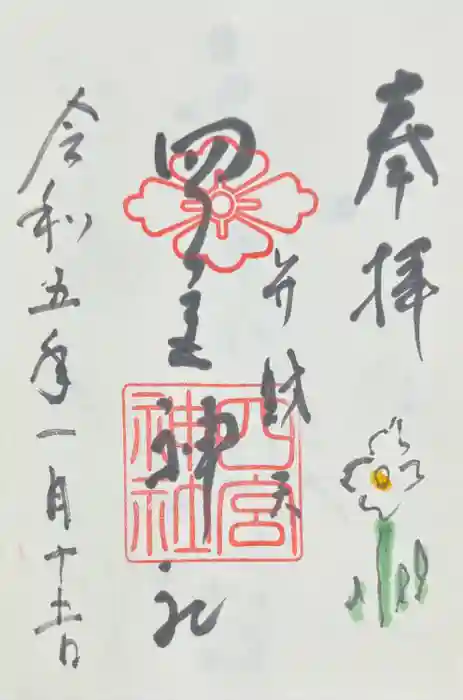 奉拝
弁財天
四宮神社
四宮
神社
令和五年一月